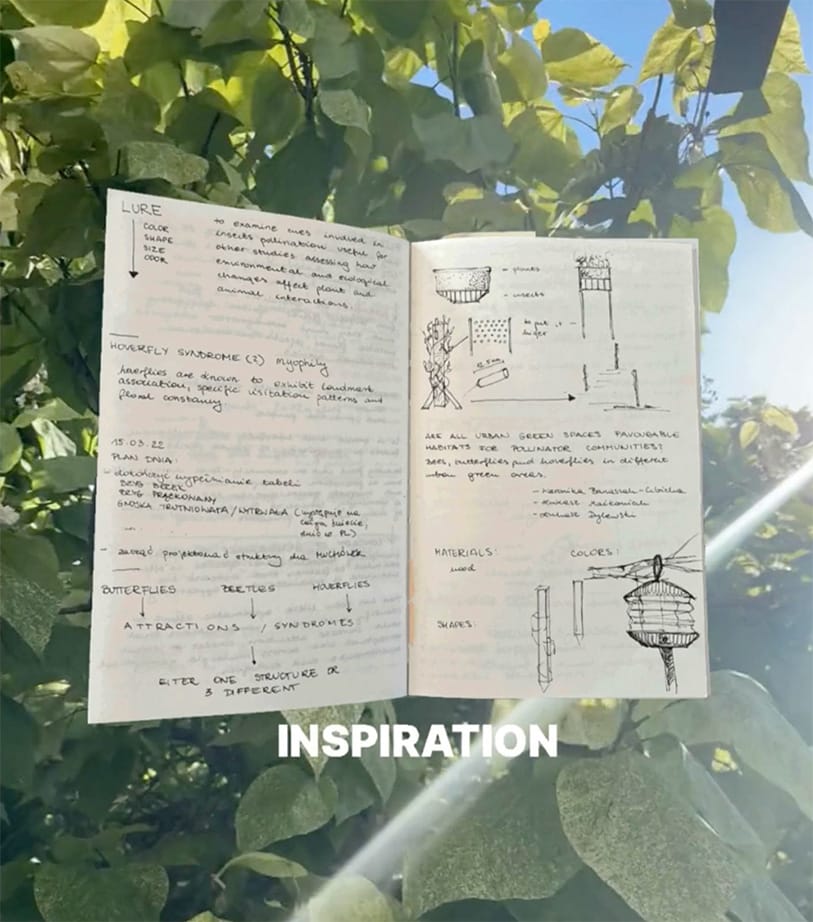 LURE
COLOR
SHAPE
SIZE
ODOR
to examine cues involved in
insects pollination useful for
other studies assessing how
environmental and ecological
changes affect plant and
animal interactions.
HOVERFLY SYNDROME (?) myophily
hoverflies are known to exhibit landmark
association, specific visitation patterns and
floral constancy
15.03.22
PLAN DNIA:
dokończyć wypełnianie tabeli
BZYG
BZYG PRĄŻKOWANY
GNOJKA TRUTNIOWATA / WYTRWAŁA (występuje na
całym świecie,
PL)
- zacząć projektować struktury dla
BUTTERFLIES BEETLES HOVERFLIES
ATTRACTIONS / SYNDROMES
EITER ONE STRUCTURE OR
3 DIFFERENT
- plants
- insects
to put it
ARE ALL URBAN GREEN SPACES FAVOURABLE
HABITATS FOR POLLINATOR COMMUNITIES?
Bees, butterflies and hoverflies in different
urban green areas.
- Weronika Banaszak-Cibicka
- Łukasz
- Dylewski
MATERIALS: COLORS:
wood
SHAPES:
INSPIRATION